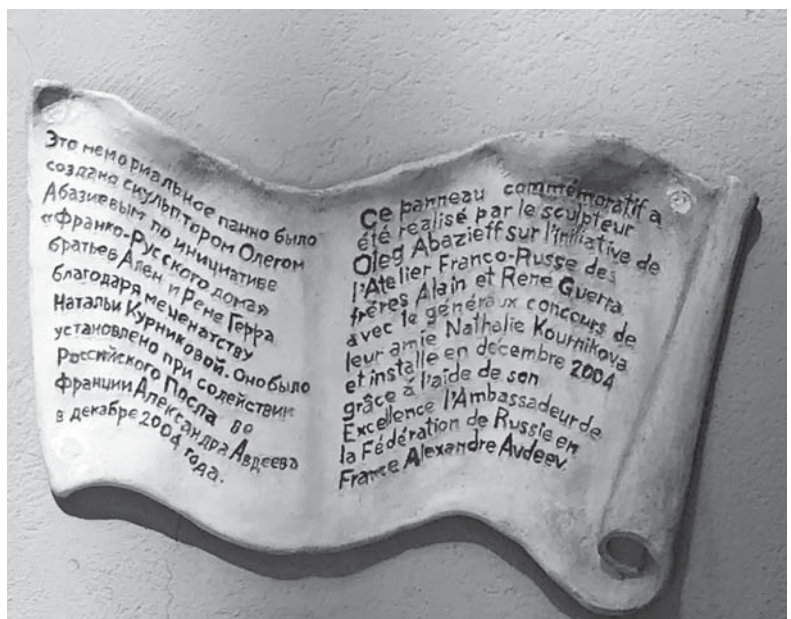 Это мемориальное панно было
создано скульптором Олегом
Абазиевым по инициативе
«Франко-Русского дома»
братьев Ален и Рене Герра
благодаря меченатству
Натальи Курниковой. Оно было
установлено при содействии
Российского Посла во
Франции Александра Авдеева
в декабре 2004 года.
Ce panneau commémoratif a
été réalisé par le sculpteur
Oleg Abazieff sur l'initiative de
l'Atelier Franco-Russe des
frères Alain et René Guerra
avec le généraux concours de
leur amie Nathalie Kournikova
et installe en décembre 2004
grâce à l'aide de son
Excellence l'Ambassadeur de
la Fédération de Russie en
France Alexandre Avdeev.